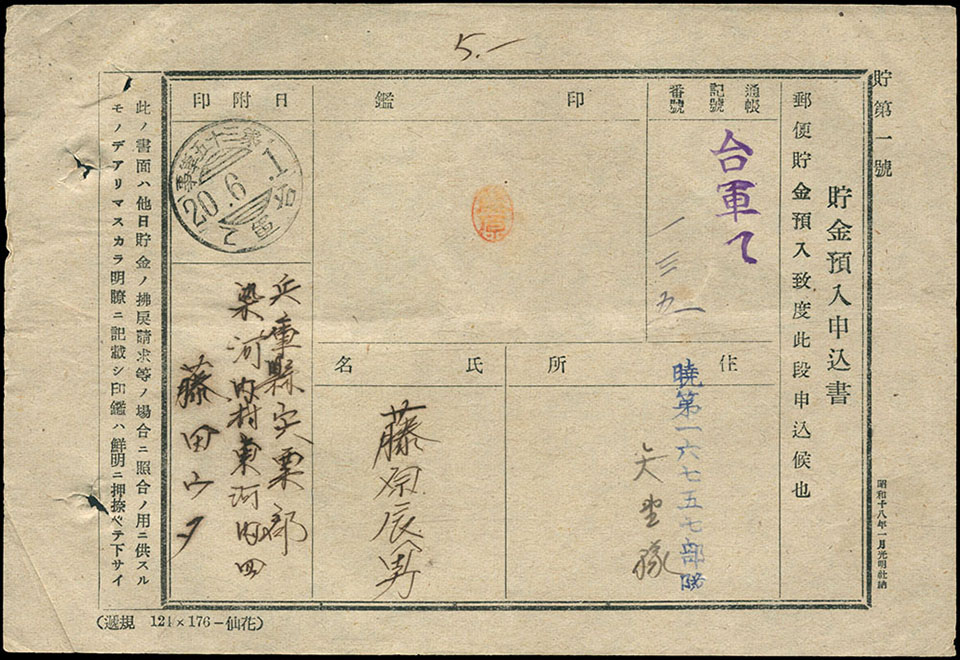 5.-
貯第一號
貯金預入申込書
郵便貯金預入致度此段申込候也
昭和十八年一月光明社納
通帳
記號
番號
台軍て
一三五一
印鑑
藤原
日附印
第三十五軍事
20.6.1
て
住所
暁第一六七五七部隊
矢野隊
氏名
藤原辰男
兵庫縣宍粟郡
染河内村東河内四
藤田
此ノ書面ハ他日貯金ノ拂戻請求等ノ場合ニ照合ノ用ニ供スル
モノデアリマスカラ明瞭ニ記載シ印鑑ハ鮮明ニ押捺ベテ下サイ
(遞規 121×176-仙花)